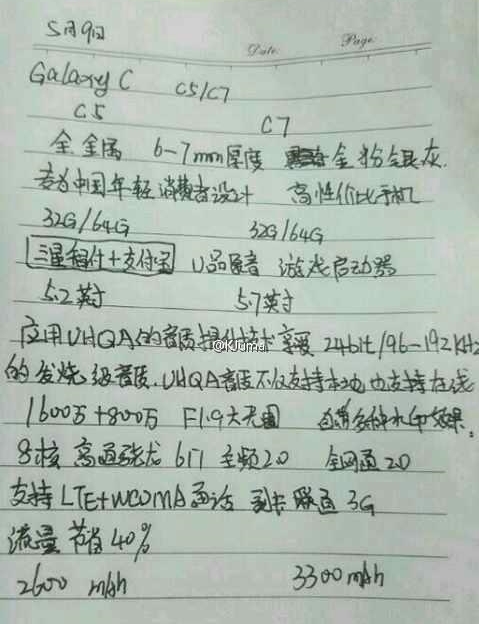 5月9日
Date Page
Galaxy C C5/C7
C5 C7
全金属 6-7mm厚度 金粉银灰.
专为中国年轻消费者设计 高性价比手机
32G/64G 32G/64G
三星智付+支付宝 U品臻音 游戏启动器
5.2英寸 5.7英寸
@KJuma
应用UHQA的音质提升技术享受 24bit/96-192KHz
的发烧级音质.UHQA音质不仅支持本地也支持在线
1600万+800万 F1.9大光圈 自带多种水印效果.
8核 高通骁龙 617 主频2.0 全网通 2.0
支持LTE+WCDMA通话 副卡联通3G
流量节省40%
2600 mAh 3300mAh